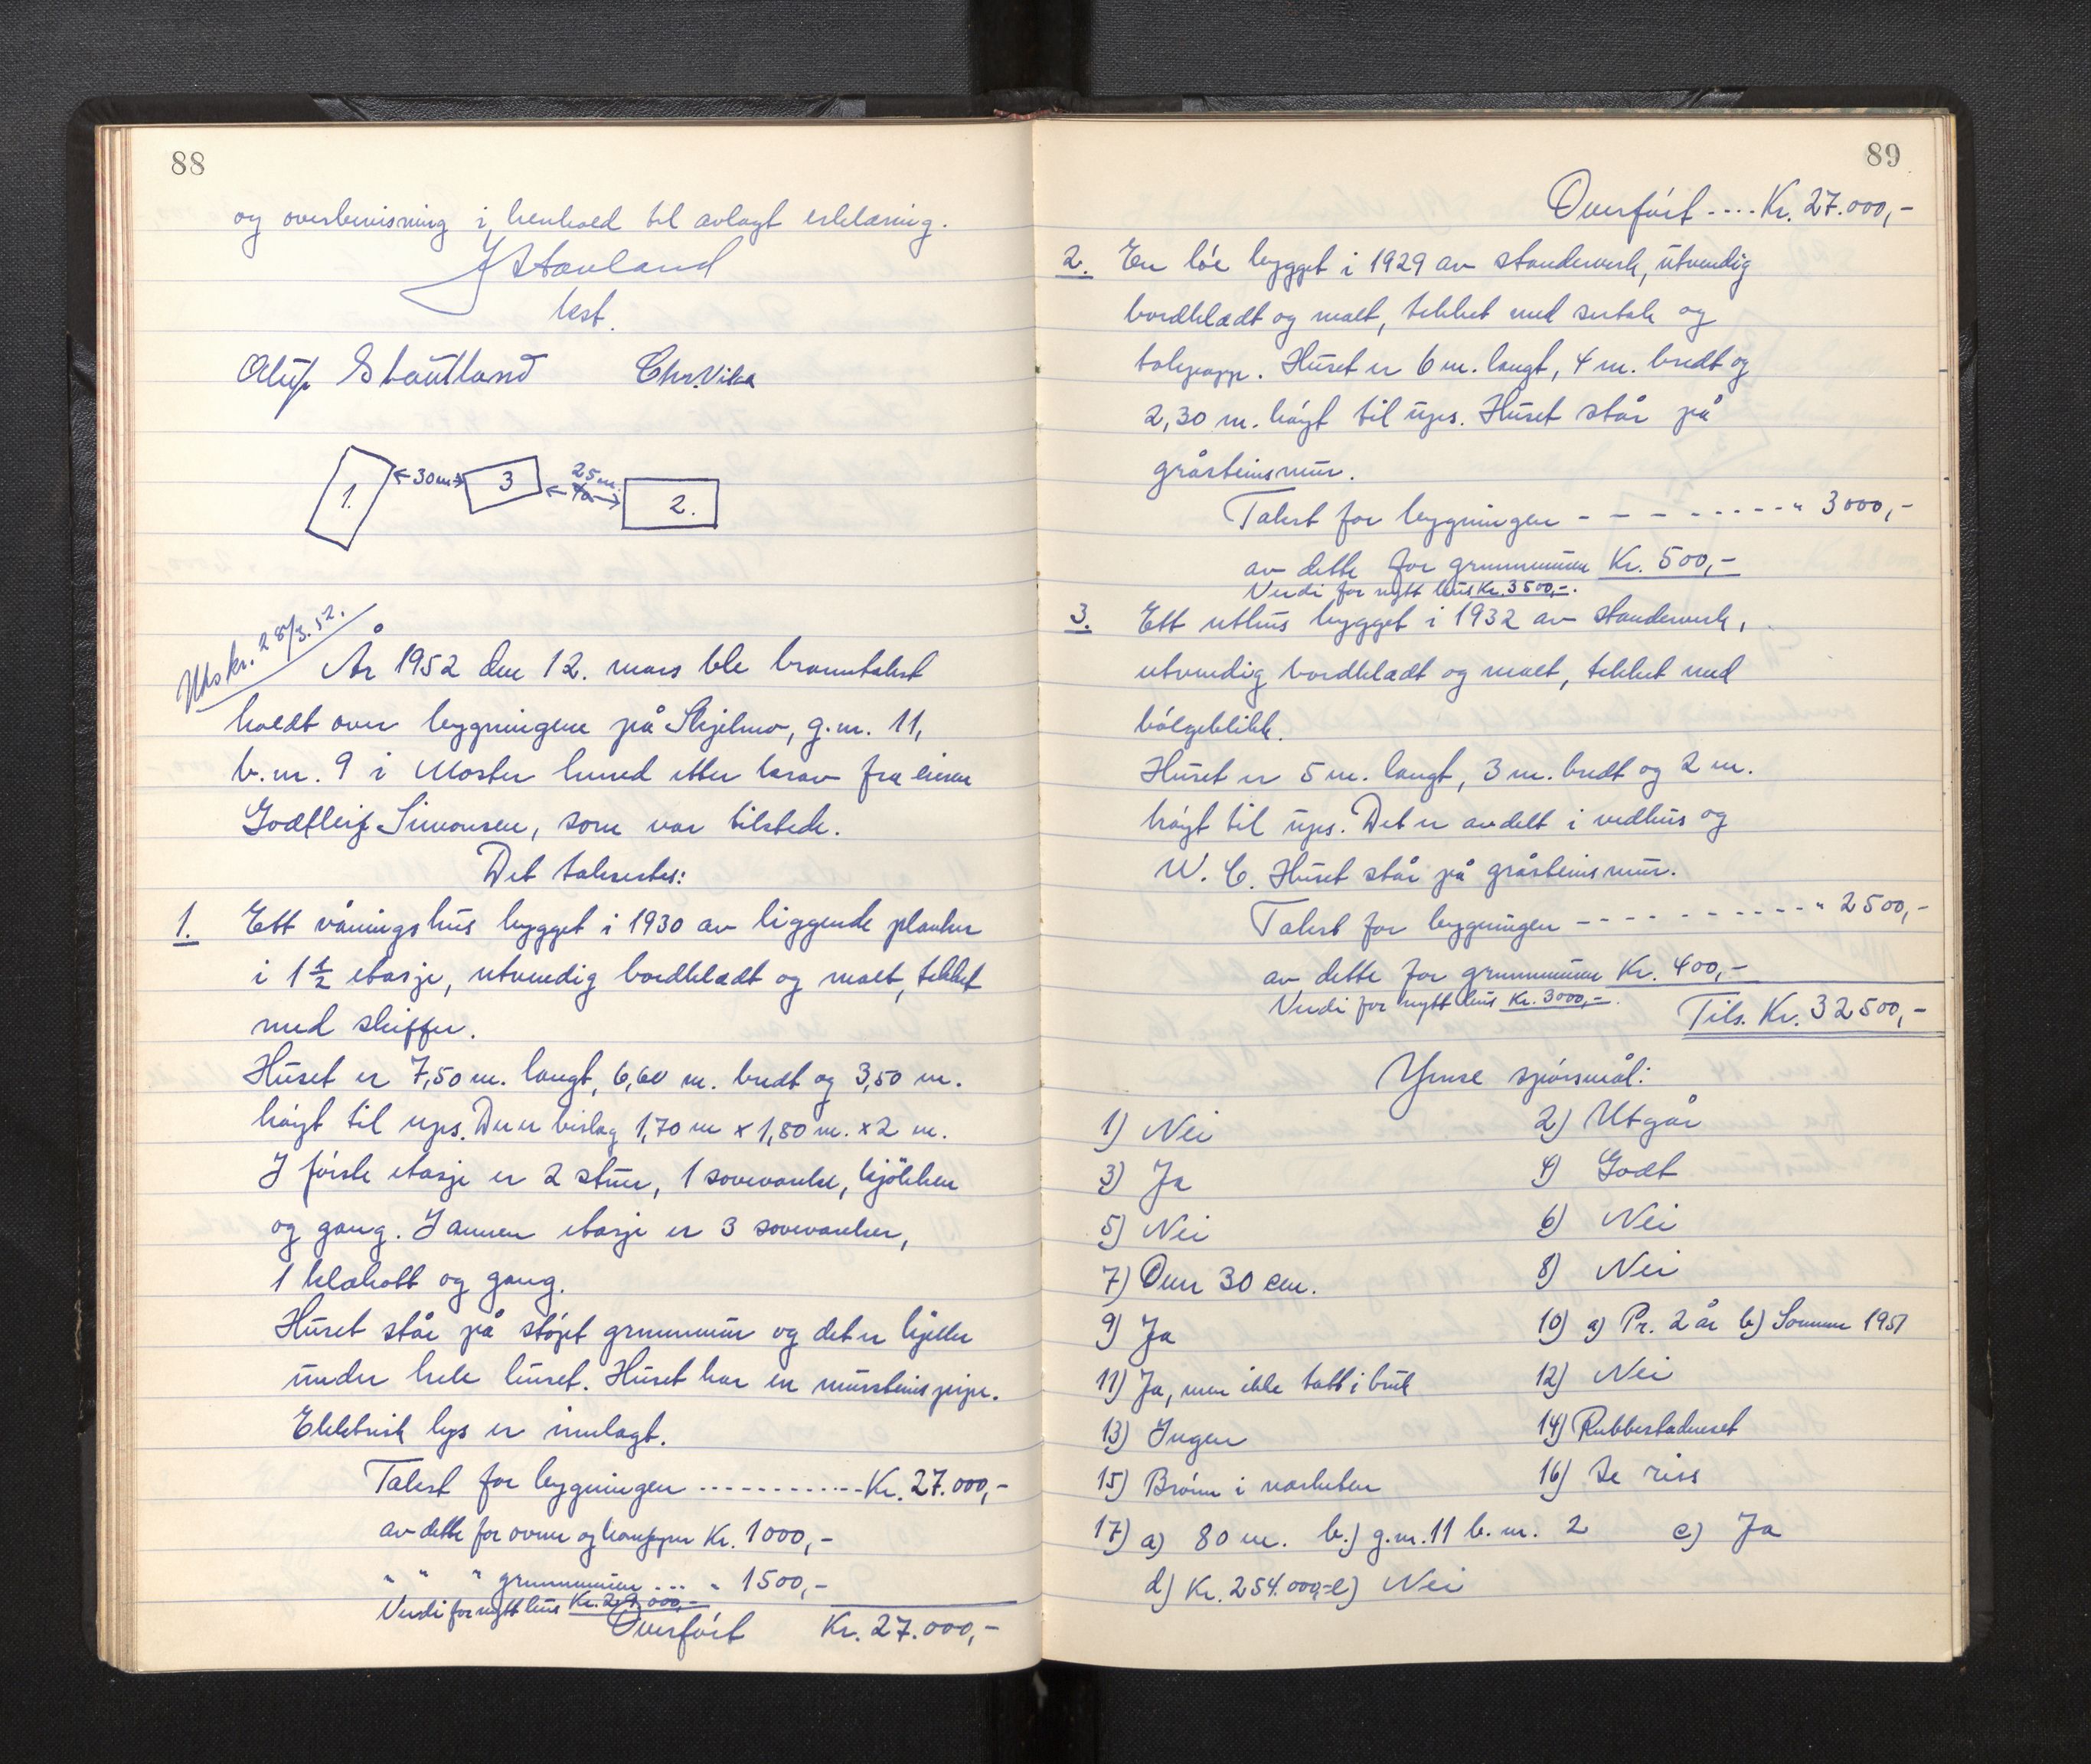 88
og overbevisning i henhold til avlagt erklæring.
J Stavland
lest.
Chr. Vika
1.
30m
3
25m.
2.
Utskr. 28/3.52.
År 1952 den 12. mars ble branntakst
holdt over bygningene på Skjelnes, g.nr. 11,
b.nr. 9 i Moster herred etter krav fra eieren
Godtleif Simonsen, som var tilstede.
Det taksertes:
1. Ett våningshus bygget i 1930 av liggende planker
i 1 1/2 etasje, utvendig bordkledt og malt, tekket
med skiffer.
Huset er 7,50 m. langt, 6,60 m. bredt og 3,50 m.
høyt til ups. Der er bislag 1,70 m x 1,80 m. x 2 m.
I første etasje er 2 stuer, 1 soveværelse, kjøkken
og gang. I annen etasje er 3 soveværelser,
1 klekott og gang.
Huset står på støpt grunnmur og det er kjeller
under hele huset. Huset har en mursteinspipe.
Elektrisk lys er innlagt.
Takst for bygningen ............ Kr. 27.000,-
av dette for ovner og komfyrer Kr. 1000,-
" " " grunnmuren ... " 1500,-
Verdi for nytt hus Kr. 29.000,-
Overført Kr. 27.000,-
89
Overført .... Kr. 27.000,-
2. En løe bygget i 1929 av standerverk, utvendig
bordkledt og malt, tekket med sutak og
takpapp. Huset er 6 m. langt, 4 m. bredt og
2,30 m. høyt til ups. Huset står på
gråsteinsmur.
Takst for bygningen - - - - - - - - - " 3000,-
av dette for grunnmuren Kr. 500,-
Verdi for nytt hus Kr. 3500,-.
3. Ett uthus bygget i 1932 av standerverk,
utvendig bordkledt og malt, tekket med
bølgeblikk.
Huset er 5 m. langt, 3 m. bredt og 2 m.
høyt til ups. Det er avdelt i vedhus og
W. C. Huset står på gråsteinsmur.
Takst for bygningen - - - - - - - - - - " 2500,-
av dette for grunnmuren Kr. 400,-
Verdi for nytt hus Kr. 3000,-.
Tils. Kr. 32500,-
Ymse spørsmål:
1) Nei 2) Utgår
3) Ja 4) Godt
5) Nei 6) Nei
7) Over 30 cm. 8) Nei
9) Ja 10) a) Pr. 2 år b) Sommer 1951
11) Ja, men ikke tatt i bruk 12) Nei
13) Ingen 14) Rubbestadneset
15) Brønn i nærheten 16) Se riss
17) a) 80 m. b.) g.nr. 11 b.nr. 2 c) Ja
d) Kr. 254.000,- e) Nei